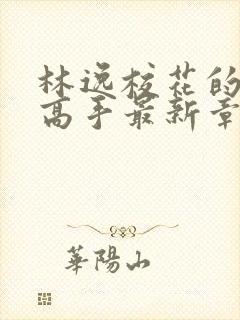 林逸校花的
高手最新章
華陽山